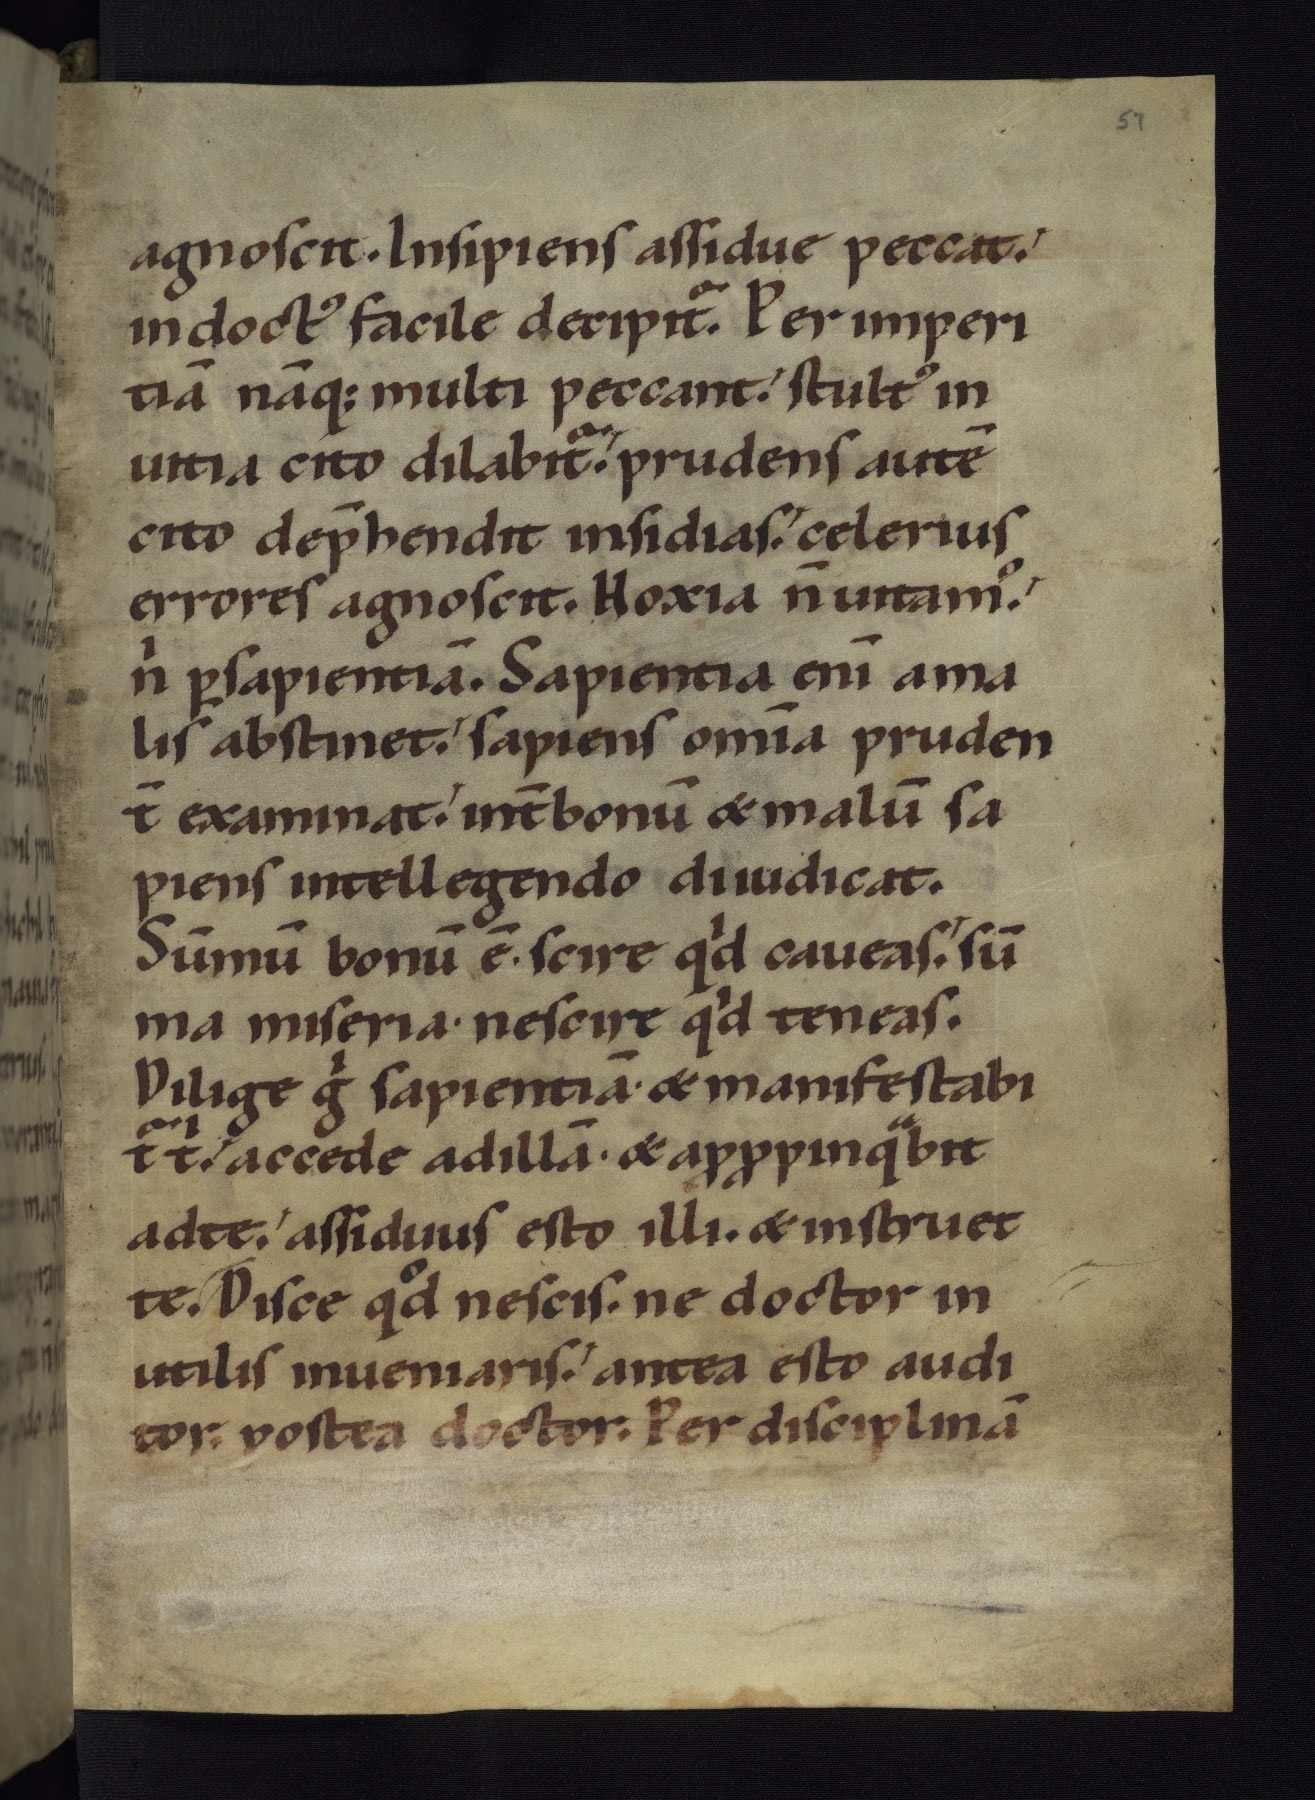 57
agnoscit. Insipiens assidue peccat.
indoct᾿ facile decipit̃. Per imperi
tiā nāq; multi peccant. stult᾿ in
uitia cito dilabit̃. prudens autē
cito dep̄hendit insidias. celerius
errores agnoscit. Noxia n̄ uitam᾿.
nͥ ꝑsapientiā. Sapientia enī ama
lis abstinet. sapiens omīa pruden
t̄ examinat. int̄bonū & malū sa
piens intellegendo diiudicat.
Sūmū bonū ē. scire qͥd caueas. sū
ma miseria. nescire qͥd teneas.
Dilige gͥ sapientiā. & manifestabi
t̃ tͥ. accede adillā. & aꝓꝓpinqͣbit
adte. assiduus esto illi. & instruet
te. Disce qͦd nescis. ne doctor in
utilis inueniaris. antea esto audi
tor. postea doctor. Per disciplinā